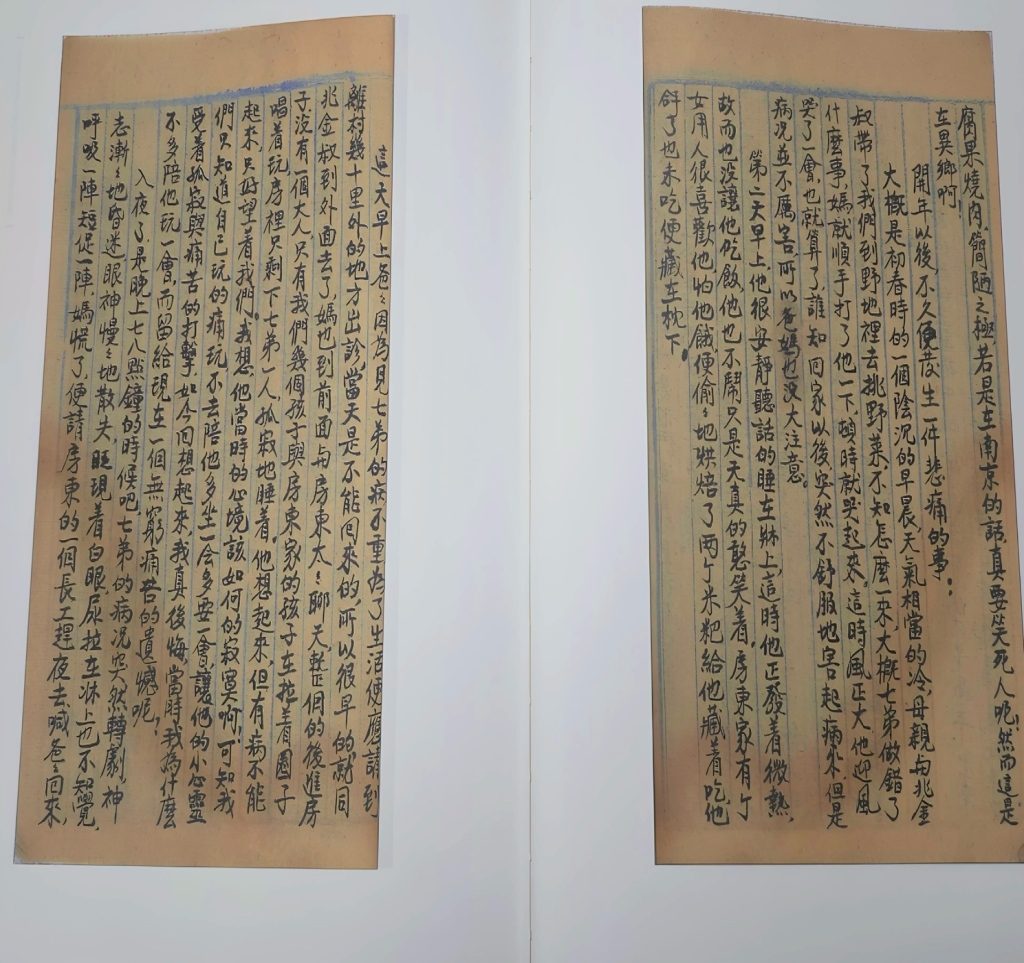 腐果燒肉，簡陋之極，若是在南京的話，真要笑死人呢！然而這是
在異鄉啊！
開年以後，不久便發生一件悲痛的事：
大概是初春時的一個陰沉的早晨，天氣相當的冷，母親與兆金
叔帶了我們到野地裡去挑野菜，不知怎麼一來，大概七弟做錯了
什麼事，媽就順手打了他一下，頓時就哭起來，這時風正大，他迎風
哭了一會，也就算了，誰知回家以後，突然不舒服地害起病來，但是
病況並不厲害，所以爸媽也沒大注意。
第二天早上他很安靜聽話的睡在牀上，這時他正發着微熱，
故而也沒讓他吃飯，他也不鬧，只是天真的憨笑着，房東家有个
女用人很喜歡他，怕他餓，便偷々地烘焙了兩个米粑給他藏着吃，他
仔了也未吃便藏在枕下。
這天早上爸々因為見七弟的病不重，為了生活便應請到
離村幾十里外的地方出診，當天是不能回來的，所以很早的就同
兆金叔到外面去了，媽也到前面與房東太々聊天，整個的後進房
子沒有一個大人，只有我們幾個孩子與房東家的孩子在拉着圈子
唱着玩，房裡只剩下七弟一人，孤寂地睡着。他想起來，但有病不能
起來，只好望着我們。我想，他當時的心境該如何的寂寞啊，可知我
們只知道自己玩的痛玩，不去陪他多坐一會，多耍一會，讓他的小心靈
受着孤寂與痛苦的打擊，如今回想起來，我真後悔，當時我為什麼
不多陪他玩一會，而留給現在一個無窮痛苦的遺憾呢，
入夜了，是晚上七八點鐘的時候吧，七弟的病況突然轉劇，神
志漸々地昏迷，眼神慢々地散失，眶現着白眼，尿拉在牀上也不知覺，
呼吸一陣短促一陣，媽慌了，便請房東的一個長工趕夜去喊爸々回來，